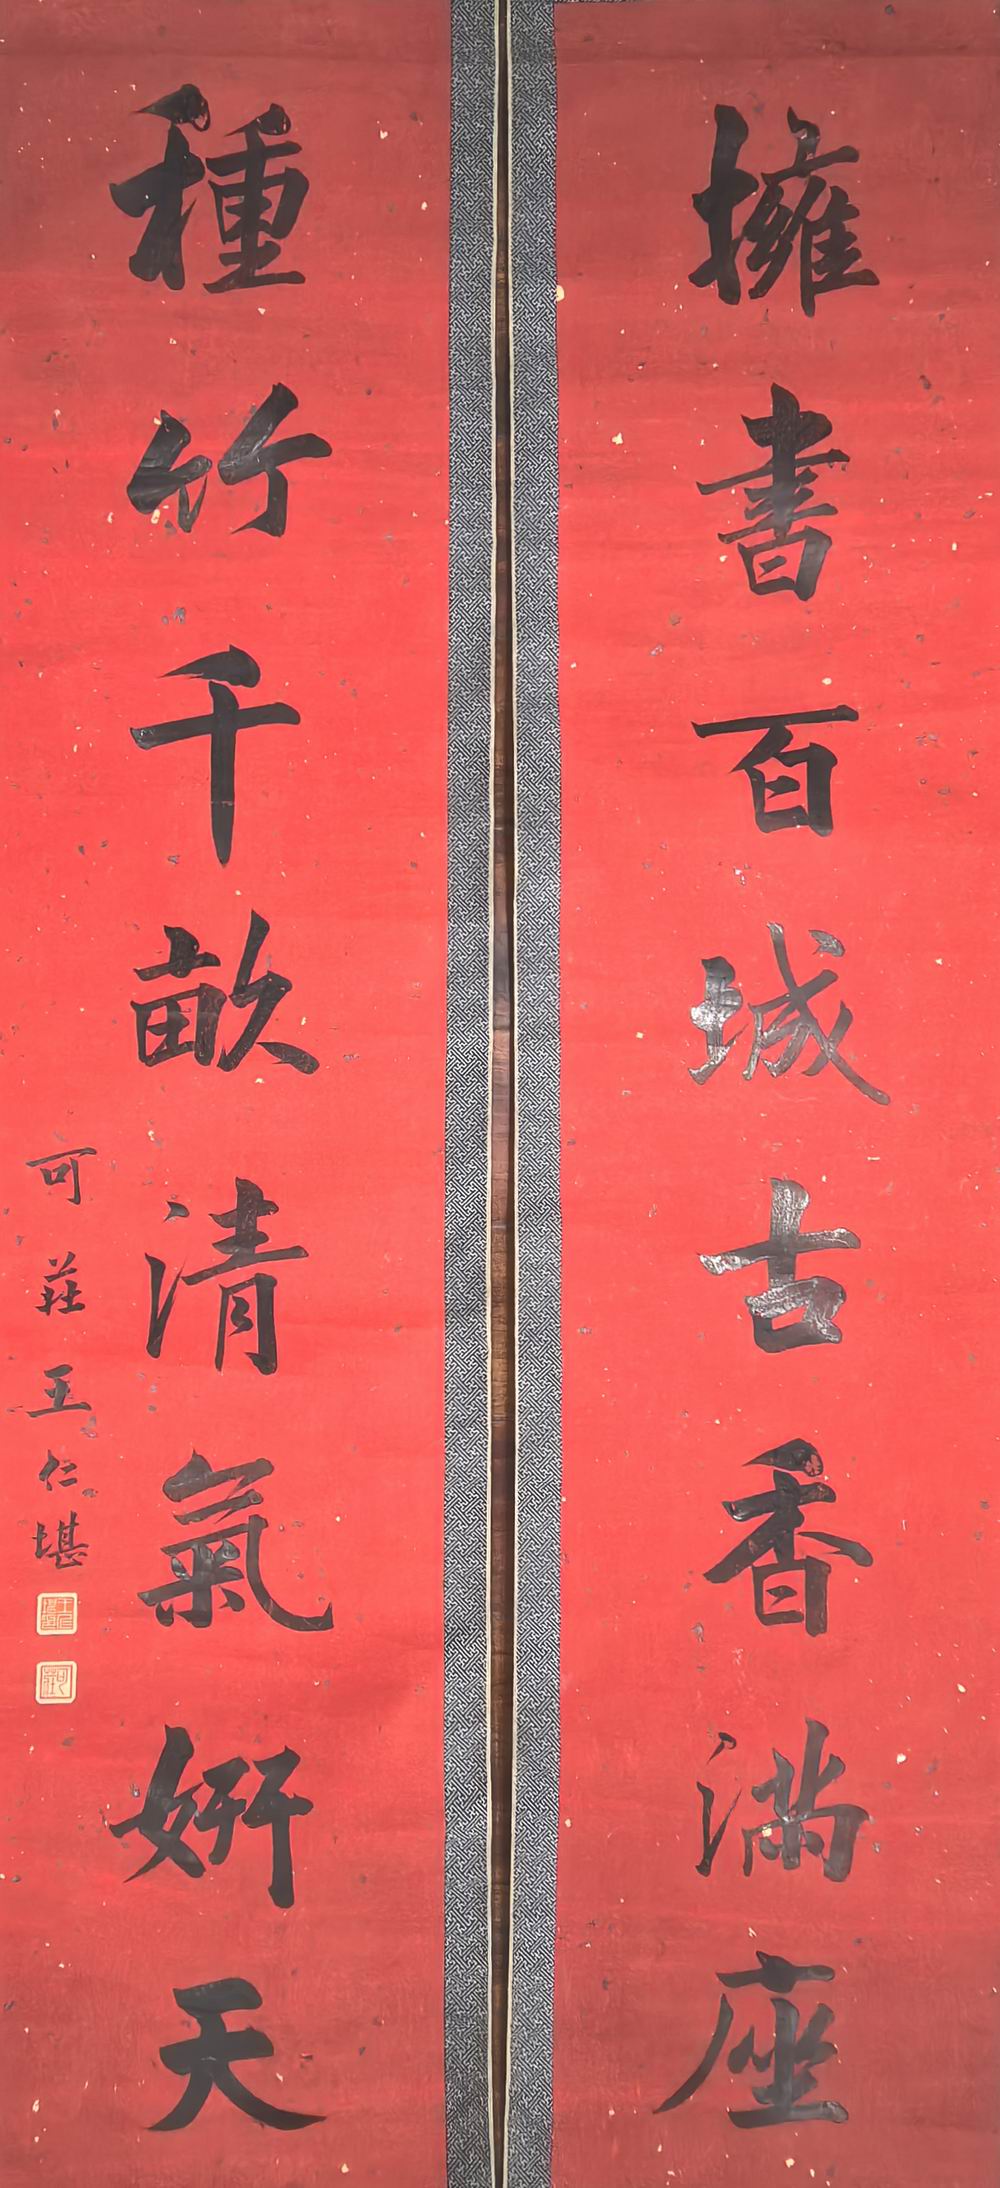 擁書百城古香滿座
種竹千畝清氣妍天
可莊王仁堪